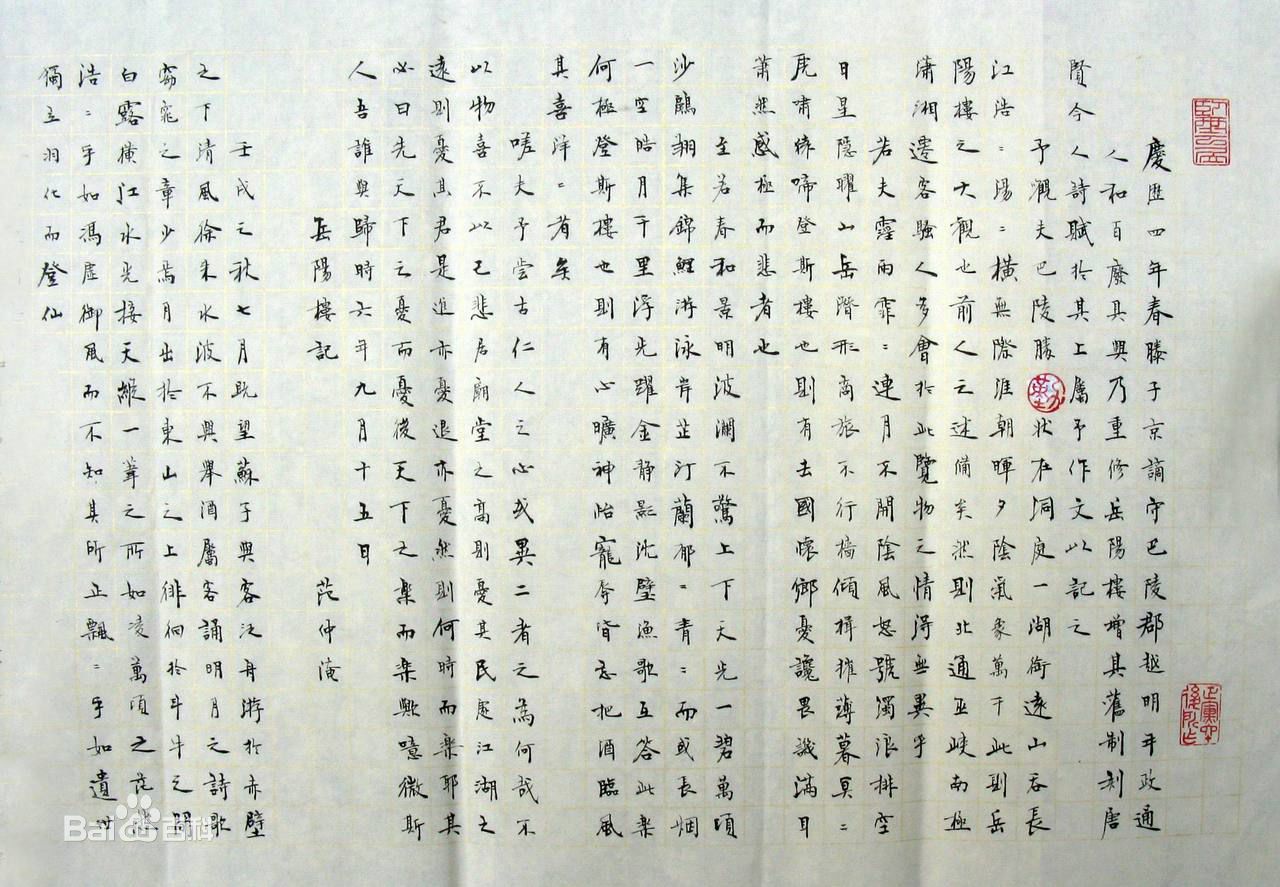 慶歷四年春滕子京謫守巴陵郡越明年政通
人和百廢具興乃重修岳陽樓增其舊制刻唐
賢今人詩賦於其上屬予作文以記之
予觀夫巴陵勝狀在洞庭一湖銜遠山吞長
江浩〻湯〻橫無際涯朝暉夕陰氣象萬千此則岳
陽樓之大觀也前人之述備矣然則北通巫峽南極
瀟湘遷客騷人多會於此覽物之情得無異乎
若夫霪雨霏〻連月不開陰風怒號濁浪排空
日星隱曜山岳潛形商旅不行檣傾楫摧薄暮冥〻
虎嘯猿啼登斯樓也則有去國懷鄉憂讒畏譏滿目
蕭然感極而悲者也
至若春和景明波瀾不驚上下天光一碧萬頃
沙鷗翔集錦鯉游泳岸芷汀蘭郁〻青〻而或長烟
一空皓月千里浮光躍金靜影沈璧漁歌互答此樂
何極登斯樓也則有心曠神怡寵辱皆忘把酒臨風
其喜洋〻者矣
嗟夫予嘗古仁人之心或異二者之為何哉不
以物喜不以己悲居廟堂之高則憂其民處江湖之
遠則憂其君是進亦憂退亦憂然則何時而樂耶其
必曰先天下之憂而憂後天下之樂而樂歟噫微斯
人吾誰與歸時六年九月十五日
岳陽樓記 范仲淹
壬戌之秋七月既望蘇子與客泛舟游於赤壁
之下清風徐來水波不興舉酒屬客誦明月之詩歌
窈窕之章少焉月出於東山之上徘徊於斗牛之間
白露橫江水光接天縱一葦之所如凌萬頃之茫然
浩〻乎如馮虛御風而不知其所止飄〻乎如遺世
獨立羽化而登仙
Bai百科